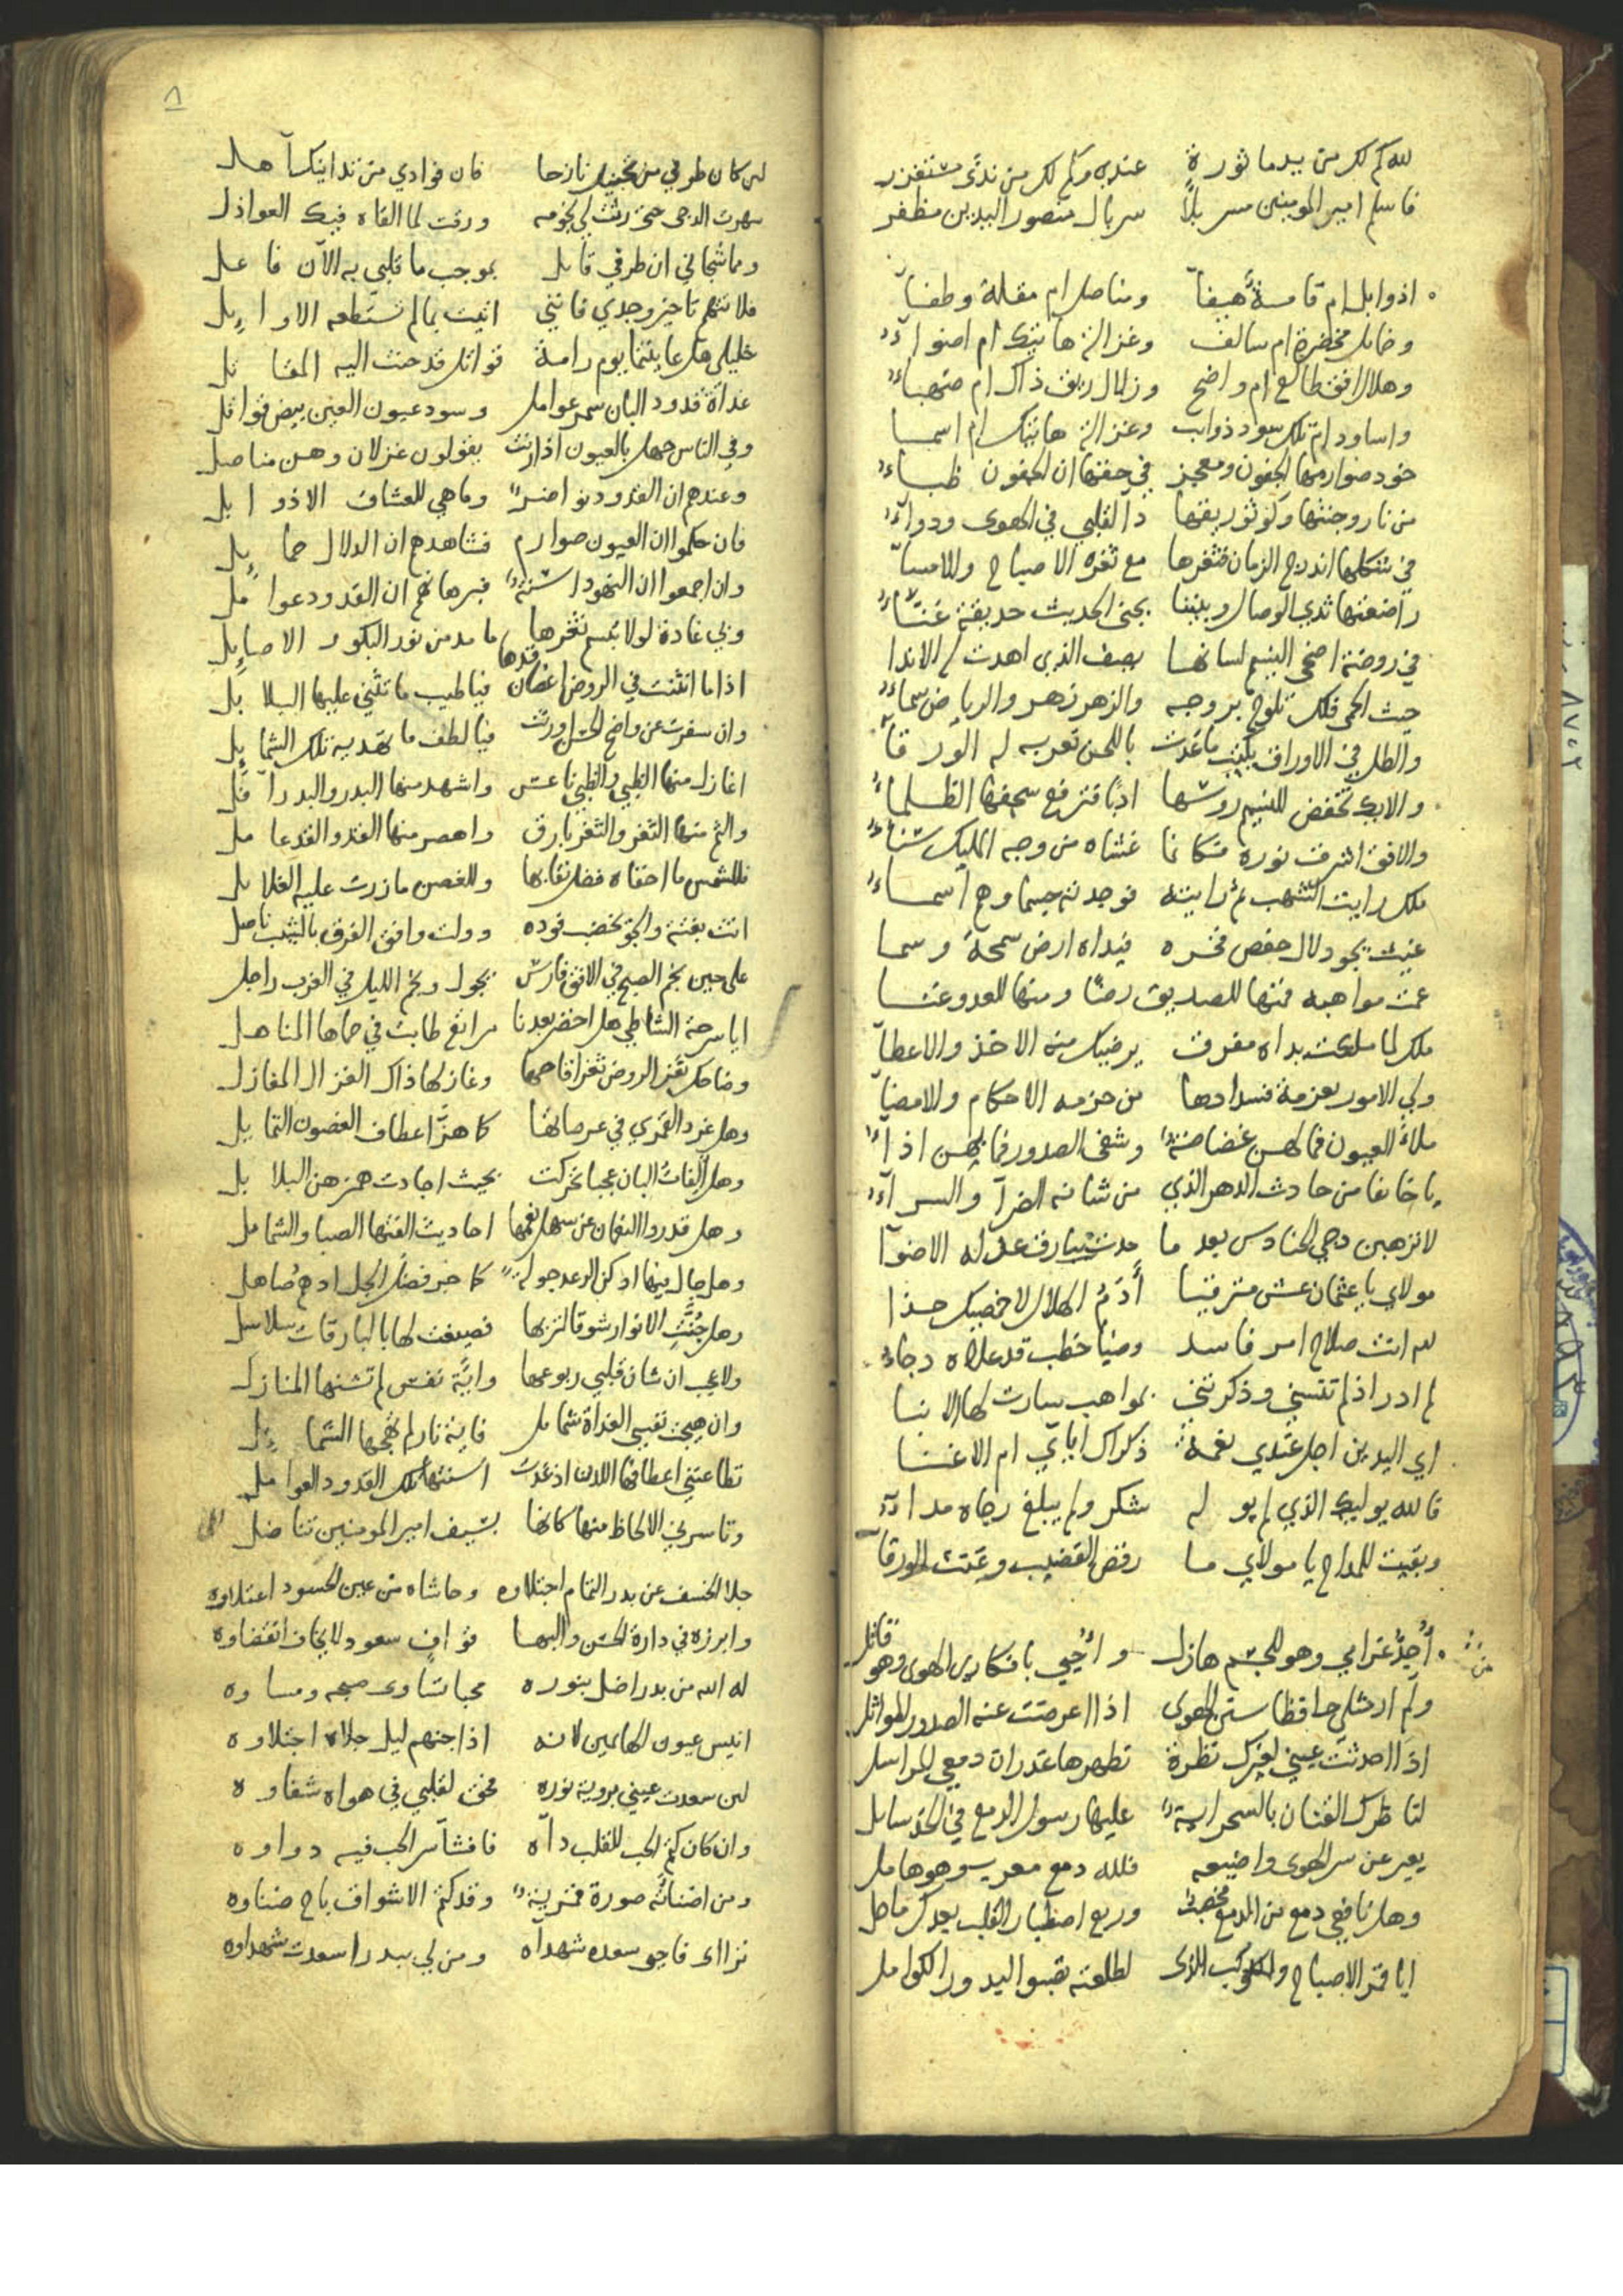 لله كم لك من يد ماثورة عندي وكم لك من ندى مستغزر
فاسلم امير المومنين مسربلاً سربال منصور اليدين مظفر
اذوابل ام قامة هيفآ ومناصل ام مقلة وطفآ
وخمائل مخضرة ام سالف وغزالة هاتيك ام اضوآء
وهلال افق طالع ام واضح وزلال ريق ذاك ام صهباء
واساود ام تلك سود ذوايب وغزالة هاتيك ام اسما
خود صوارمها الجفون ومعجز في جفنها ان الجفون ظباء
من نار وجنتها وكوثر ريقها دآ لقلبي في الهوى ودوآء
في شكلها اندرج الزمان فثغرها مع ثغره الاصباح والامسآ
راضعتها ثدي الوصال وبيننا بجنى الحديث حديقة غنآء
في روضة اضحى النسيم لسانها يصف الذي اهدت له الاندا
حيث الحمى فلك تلوح بروجه والزهر زهر والرياض سماء
والطل في الاوراق يكتب ما غدت باللحن تعربه له الورقآ
والايك تخفض للنسيم روسها ادبا فترفع سجفها الظلماء
والافق اشرق نوره فكانما غشاه من وجه المليك سناء
ملك رايت الشهب ثم رايته فوجدته جسما وهم اسماء
غيث يجود لال حفص فخره فيداه ارض سمحة وسما
عمت مواهبه فمنها للصديق رضا ومنها للعدو عنا
ملك لما ملكت يداه مفرق يرضيك منه الاخذ والاعطآ
ولي الامور بعزمة فسدادها من حزمه الاحكام والامضآ
ملأ العيون فما لهن غضاضة وشفى الصدور فما بهن اذآء
يا خائفا من حادث الدهر الذي من شانه الضرآ والسرآء
لا ترهبن دجى الحنادس بعد ما حدث ببارق عدله الاضوآ
مولاي يا عثمان عش مترقيا أدم الهلال لاخمصيك حذا
لله انت صلاح امر فاسد وضيآ خطب قد علاه دجاء
لم ادر اذ لم تنسني وذكرتني بمواهب سارت لها الانبا
اي اليدين اجل عندي نعمة ذكراك اياي ام الاغنا
فالله يوليك الذي لم يوله شكر ولم يبلغ رجاه مدآء
وبقيت للمداح يا مولاي ما رقص القضيب وغنت الورقآ
أجد غرامي وهو للجسم هازل واحيي بافكاري الهوى وهو قاتل
ولم ار مثلي حافظا سنن الهوى اذا اعرضت عنه الصدور المواثل
اذا احدثت عيني لغيرك نظرة تطهرها غدران دمعي المراسل
لناظرك الفتان بالسحر اية عليها رسول الدمع في الخد سايل
يعبر عن سر الهوى واضيعه فلله دمع معرب وهو هامل
وهل نافعي دمع من الدمع مخصب وربع اصطبار القلب بعدك ماحل
ايا قمر الاصباح والكوكب الذي لطلعته تصبو البدور الكوامل
٨
لئن كان طرفي من محياك نازحا فان فوادي من تدانيك آهل
سهرت الدجى حتى رثت لي نجومه ورقت لما القاه فيك العواذل
ومما شجاني ان طرفي قايل بموجب ما قلبي به الآن فاعل
فلا تتهم تاخير وجدي فانني اتيت بما لم تستطعه الاوايل
خليلي هل عاينتما يوم رامة قواتل قد حنت اليه المقاتل
غداة قدود البان سمر عوامل وسود عيون العين بيض قواتل
وفي الناس جهل بالعيون اذا رنت يقولون غزلان وهن مناصل
وعندهم ان القدود نواضر وما هي للعشاق الا ذوابل
فان حكموا ان العيون صوارم فشاهدهم ان الدلال حمايل
وان اجمعوا ان النهود اسنة فبرهانهم ان القدود عوامل
وبي غادة لولا تبسم ثغرها ما مد من نور البكور الاصايل
اذا ما انثنت في الروض اغصان قدها فيا طيب ما تثني عليها البلابل
وان سفرت عن واضح الحسن ورنت فيا لطف ما تهديه تلك الشمايل
اغازل منها الظبي والظبي ناعس واشهد منها البدر والبدر آفل
والثم منها الثغر والثغر بارق واهصر منها القد والقد عامل
فللشمس ما اخفاه فضل نقابها وللغصن ما زرت عليه الغلايل
اتت بغتة والجو يخضب فوده وولت وافق الفرق بالشيب ناصل
على حين نجم الصبح في الافق فارس يجول ونجم الليل في الغرب راجل
ايا سرحة الشاطي هل اخضر بعدنا مراتع طابت في حماها المناهل
وضاحك ثغر الروض ثغر اقاحها وغازلها ذاك الغزال المغازل
وهل غرد القمري في عرصاتها كما هز اعطاف الغصون التمايل
وهل ألفات البان عجبا تحركت بحيث اجادت همزهن البلابل
وهل جال بينها ادكن الرعد جولة كما خبر فضل الجل ادهم صاهل
وهل جنت الانوار شوقا لتربها فصيغت لها بالبارقات سلاسل
ولا عجب ان شان قلبي ربوعها واية نفس لم تشنها المنازل
وان هيجت نفسي الغداة شمايل فاية نار لم تهجها الشمايل
تطاعنني اعطافها اللدن اذ غدت اسنتها تلك القدود العوامل
وتاسرني الالحاظ منها كانها بسيف امير المومنين تناضل
جلا الخسف عن بدر التمام اجتلاوه وحاشاه من عين الحسود اعتلاوه
وابرزه في دارة الحسن والبها قوافي سعود لا يخاف انقضاوه
له الله من بدر اضل بنوره محبا تساوى صبحه ومساوه
انيس عيون الهائمين لانه اذا جنهم ليل جلاه اجتلاوه
لئن سعدت عيني بروية نوره فحق لقلبي في هواه شقاوه
وان كان كتم الحب للقلب دآه فافشآ سر الحب فيه دواوه
ومن اضنأته صورة قمرية وقد كتم الاشواق باح ضناوه
تراى فاحيو سعده شهداه ومن لي ببدر اسعدت شهداوه